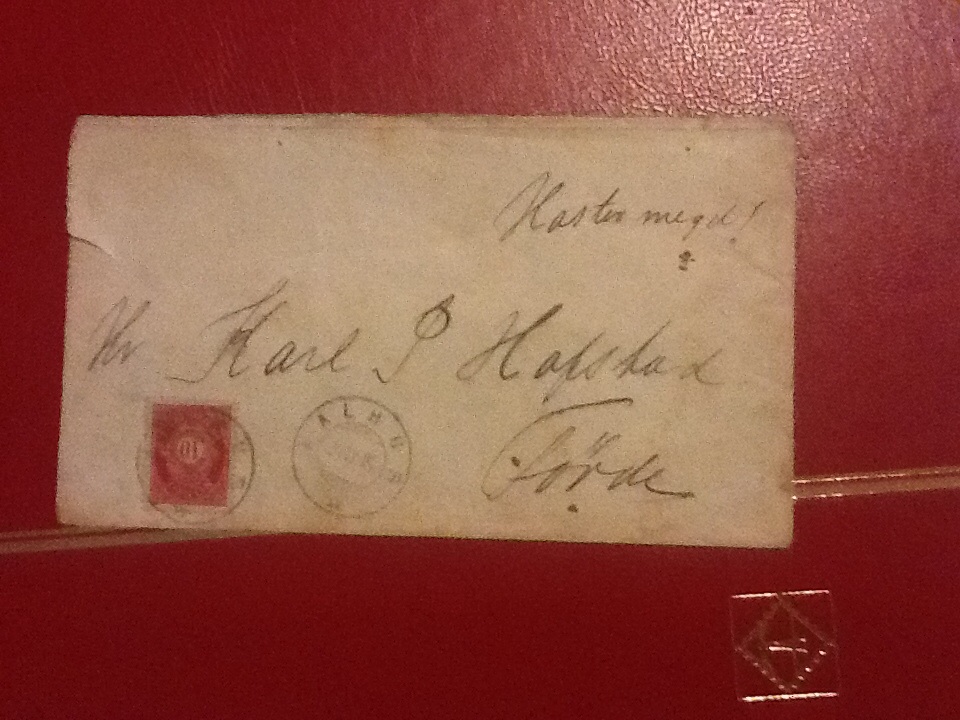 Haster megd!
Hr Karl P Hafstad
Förde
10
ALHUS